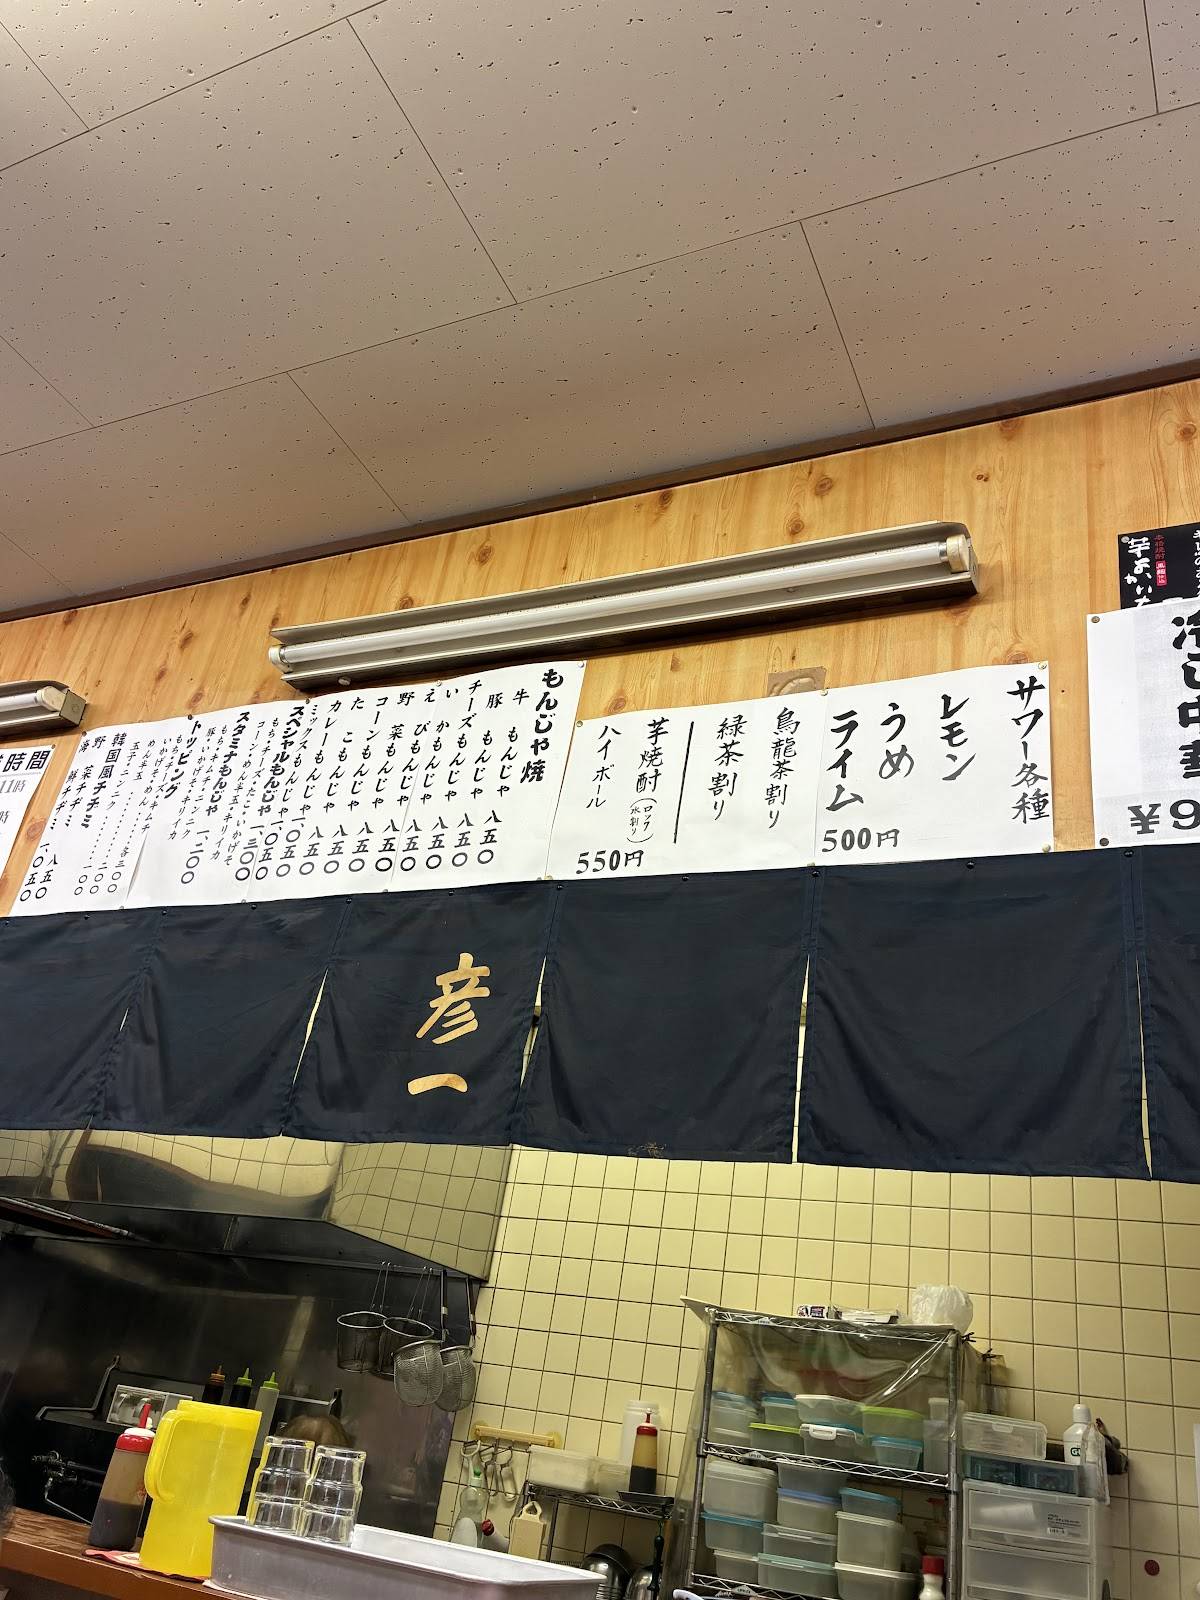 本格焼酎
冷し中華
¥9
サワー各種
レモン
うめ
ライム
500円
烏龍茶割り
緑茶割り
芋焼酎(ロック 水割り)
ハイボール
550円
もんじゃ焼
牛もんじゃ 八五〇
豚もんじゃ 八五〇
チーズもんじゃ 八五〇
いかもんじゃ 八五〇
えびもんじゃ 八五〇
野菜もんじゃ 八五〇
コーンもんじゃ 八五〇
たこもんじゃ 八五〇
カレーもんじゃ 八五〇
ミックスもんじゃ 一、〇五〇
スペシャルもんじゃ 一、〇五〇
もち・チーズ・たこ・いかげそ
コーン・めん・半玉
スタミナもんじゃ 一、三〇〇
もち・キムチ・ニンニク
豚・いかげそ・キリイカ 一、二〇〇
トッピング
もち・チーズ・キムチ
いかげそ・めん・キリイカ
めん半玉
玉子・ニンニク 各三〇〇
韓国風チヂミ
野菜チヂミ 八五〇
海鮮チヂミ 一、〇五〇
時間
11時
彦一